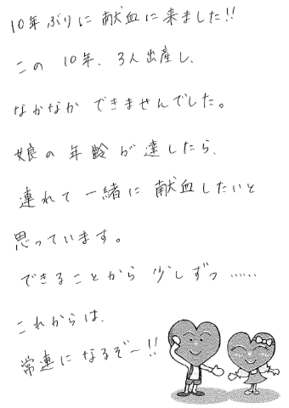 10年ぶりに献血に来ました!!
この10年、3人出産し、
なかなかできませんでした。
娘の年齢が達したら、
連れて一緒に献血したいと
思っています。
できることから少しずつ……
これからは、
常連になるぞー!!